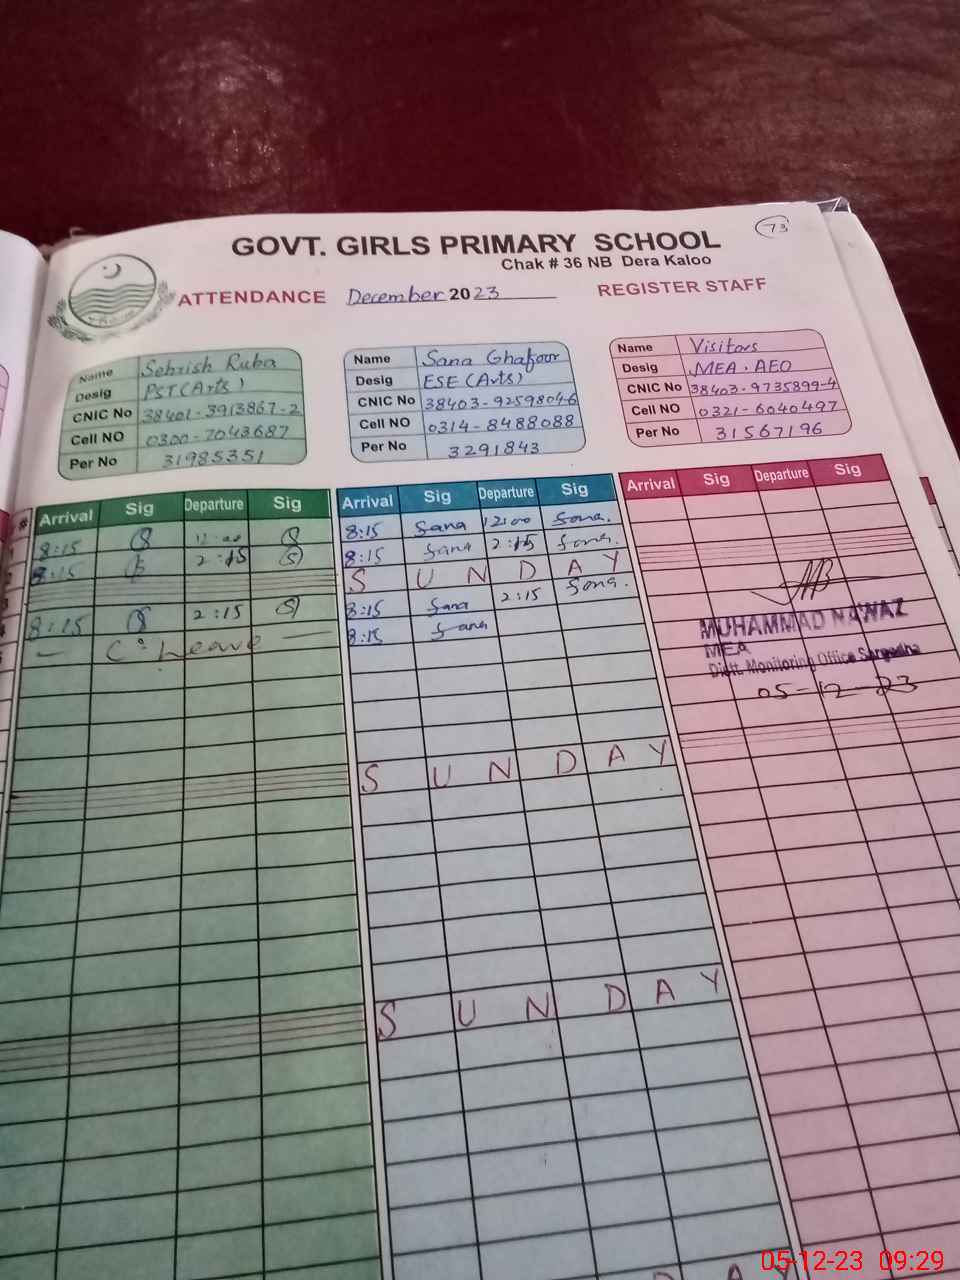 73
GOVT. GIRLS PRIMARY SCHOOL
Chak # 36 NB Dera Kaloo
ATTENDANCE December 2023 REGISTER STAFF
Name Sehrish Ruba
Desig PST (Arts)
CNIC No 38401-3913867-2
Cell NO 0300-7043687
Per No 31985351
Name Sana Ghafoor
Desig ESE (Arts)
CNIC No 38403-9259804-6
Cell NO 0314-8488088
Per No 3291843
Name Visitors
Desig MEA. AEO
CNIC No 38403-9735899-4
Cell NO 0321-6040497
Per No 31567196
# Arrival Sig Departure Sig
8:15 12:00
8:15 2:15
8:15 2:15
— C. Leave —
Arrival Sig Departure Sig
8:15 Sana 12:00 Sana.
8:15 Sana 2:15 Sana.
S U N D A Y
8:15 Sana 2:15 Sana.
8:15 Sana
S U N D A Y
S U N D A Y
D A Y
Arrival Sig Departure Sig
MUHAMMAD NAWAZ
MEA
Distt. Monitoring Office Sargodha
05-12-23
05-12-23 09:29